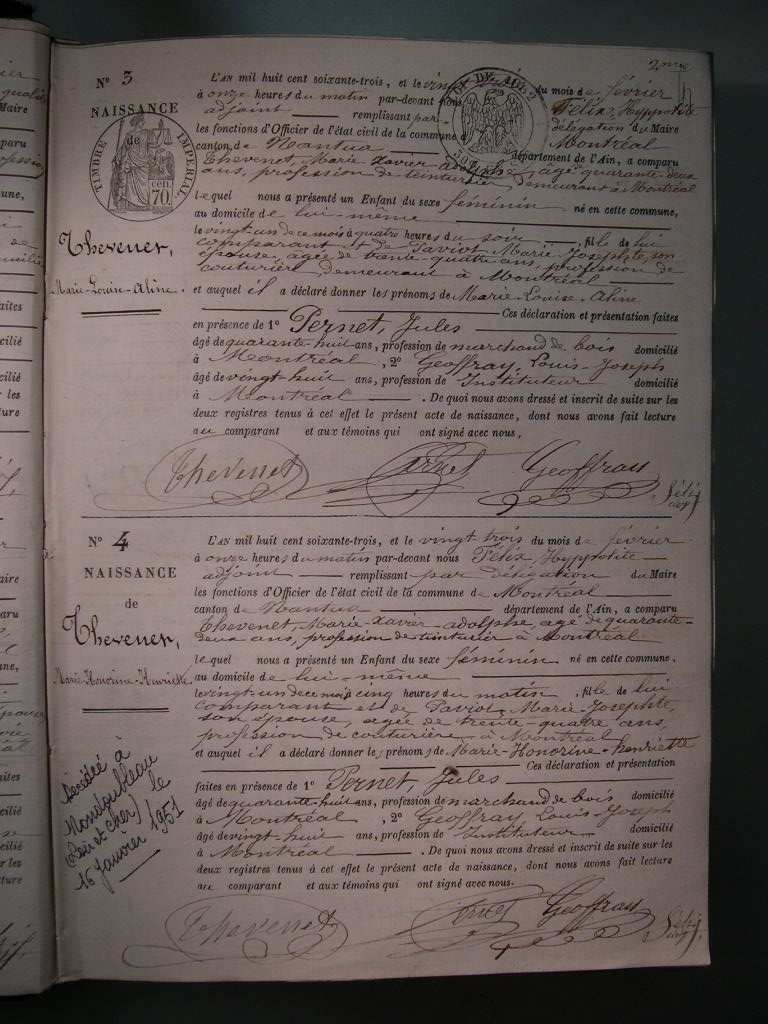 2me
N° 3
NAISSANCE
de
TIMBRE IMPÉRIAL
70 cen.
Thevenet,
Marie-Louise-Aline.
L'AN mil huit cent soixante-trois, et le vingt trois du mois de février
à onze heures du matin par-devant nous Félix, Hyppolite
adjoint remplissant par délégation du Maire
les fonctions d'Officier de l'état civil de la commune de Montréal
canton de Nantua département de l'Ain, a comparu
Thevenet, Marie Xavier adolphe, agé quarante-deux
ans, profession de teinturier, demeurant à Montréal
lequel nous a présenté un Enfant du sexe féminin né en cette commune,
au domicile de lui-même
le vingt un de ce mois à quatre heures du soir, fille de lui
comparant et de Taviot, Marie Josephte, son
épouse, agée de trente-quatre ans, profession de
couturière demeurant à Montréal
et auquel il a déclaré donner les prénoms de Marie-Louise-Aline
Ces déclaration et présentation faites
en présence de 1° Pernet, Jules
âgé de quarante-huit ans, profession de marchand de bois domicilié
à Montréal, 2° Geoffray, Louis-Joseph
âgé de vingt-huit ans, profession de Instituteur domicilié
à Montréal. De quoi nous avons dressé et inscrit de suite sur les
deux registres tenus à cet effet le présent acte de naissance, dont nous avons fait lecture
au comparant et aux témoins qui ont signé avec nous.
Thevenet Pernet Geoffray Félix
N° 4
NAISSANCE
de
Thevenet,
Marie-Honorine-Henriette.
Décédée à
(Loir et Cher) le
16 Janvier 1951
L'AN mil huit cent soixante-trois, et le vingt trois du mois de février
à onze heures du matin par-devant nous Félix, Hyppolite
adjoint remplissant par délégation du Maire
les fonctions d'Officier de l'état civil de la commune de Montréal
canton de Nantua département de l'Ain, a comparu
Thevenet, Marie-Xavier-adolphe, agé de quarante-
deux ans, profession de teinturier à Montréal
lequel nous a présenté un Enfant du sexe féminin né en cette commune,
au domicile de lui-même
le vingt-un de ce mois à cinq heures du matin, fille de lui
comparant et de Taviot, Marie-Josephte,
son épouse, agée de trente-quatre ans,
profession de couturière à Montréal
et auquel il a déclaré donner les prénoms de Marie-Honorine-henriette
Ces déclaration et présentation
faites en présence de 1° Pernet, Jules
âgé de quarante-huit ans, profession de marchand de bois domicilié
à Montréal, 2° Geoffray, Louis-Joseph
âgé de vingt-huit ans, profession de Instituteur domicilié
à Montréal. De quoi nous avons dressé et inscrit de suite sur les
deux registres tenus à cet effet le présent acte de naissance, dont nous avons fait lecture
au comparant et aux témoins qui ont signé avec nous.
Thevenet Pernet Geoffray Félix